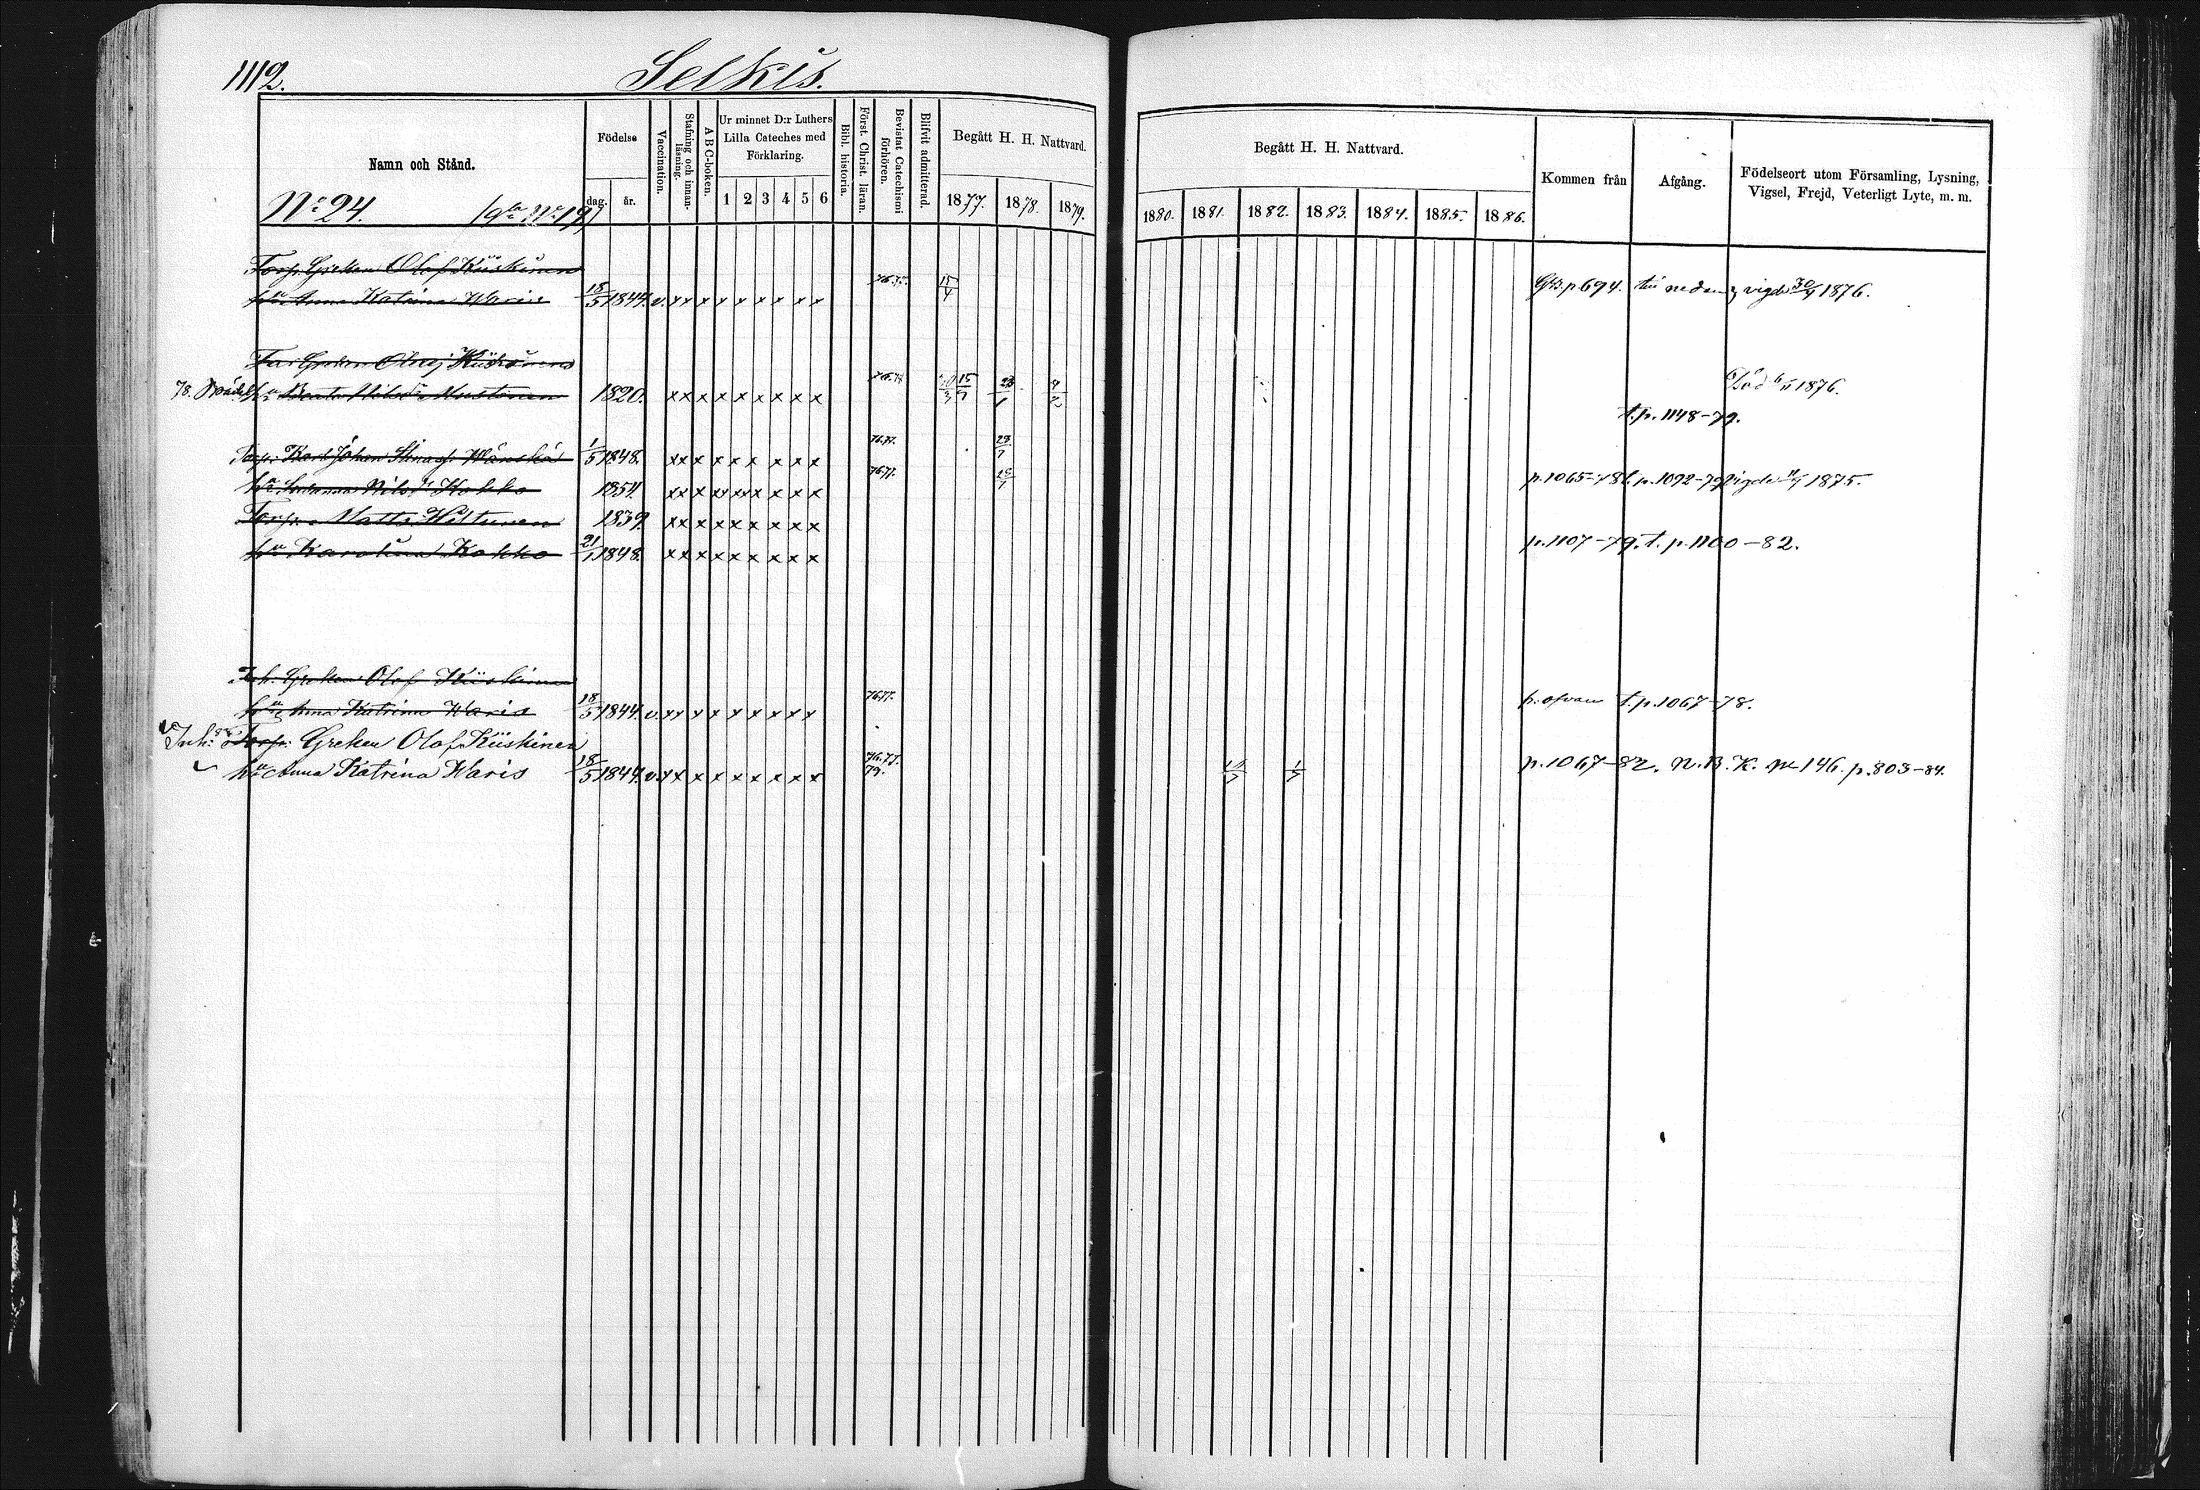 1112.
Selkis.
Namn och Stånd.
Födelse
dag. år.
Vaccination.
Stafning och innanläsning.
A B C-boken.
Ur minnet D:r Luthers Lilla Cateches med Förklaring.
1 2 3 4 5 6
Bibl. historia.
Först. Christ. läran.
Bevistat Catechismi förhören.
Blifvit admitterad.
Begått H. H. Nattvard.
1877. 1878. 1879.
Begått H. H. Nattvard.
1880. 1881. 1882. 1883. 1884. 1885. 1886.
Kommen från
Afgång.
Födelseort utom Församling, Lysning, Vigsel, Frejd, Veterligt Lyte, m. m.
No 24. No 19
Torp. Greken Olof Kiiskinen
hu Anna Katrina Waris 18/5 1844. v. x x x x x x x x x 76.77. 15/4 Gb. p. 694. vigde 30/4 1876.
Greken Kiiskinen
78. hu Beata Nilsdr Mustonen 1820. x x x x x x x x x Död 1876.
t. p. 1148-79.
Torp. Karl Johan 1/5 1848. x x x x x x x x x 76.77.
hu Nilsdr Kokko 1854. x x x x x x x x x 76.77. p. 1065-78 t. p. 1092-79 vigde 1875.
Torp. Matts Wiltunen 1839. x x x x x x x x x
hu Karolina Kokko 21/1 1848. x x x x x x x x x p. 1107-79. t. p. 1100-82.
Inh. Greken Olof Kiiskinen
hu Anna Katrina Waris 18/5 1844. v. x x x x x x x x x 76.77. p. ofvan t. p. 1067-78.
Inh. Torp. Greken Olof Kiiskinen
hu Anna Katrina Waris 18/5 1844. v. x x x x x x x x x 76.77. 79. p. 1067-82. N. B. K. No 146. p. 803-84.